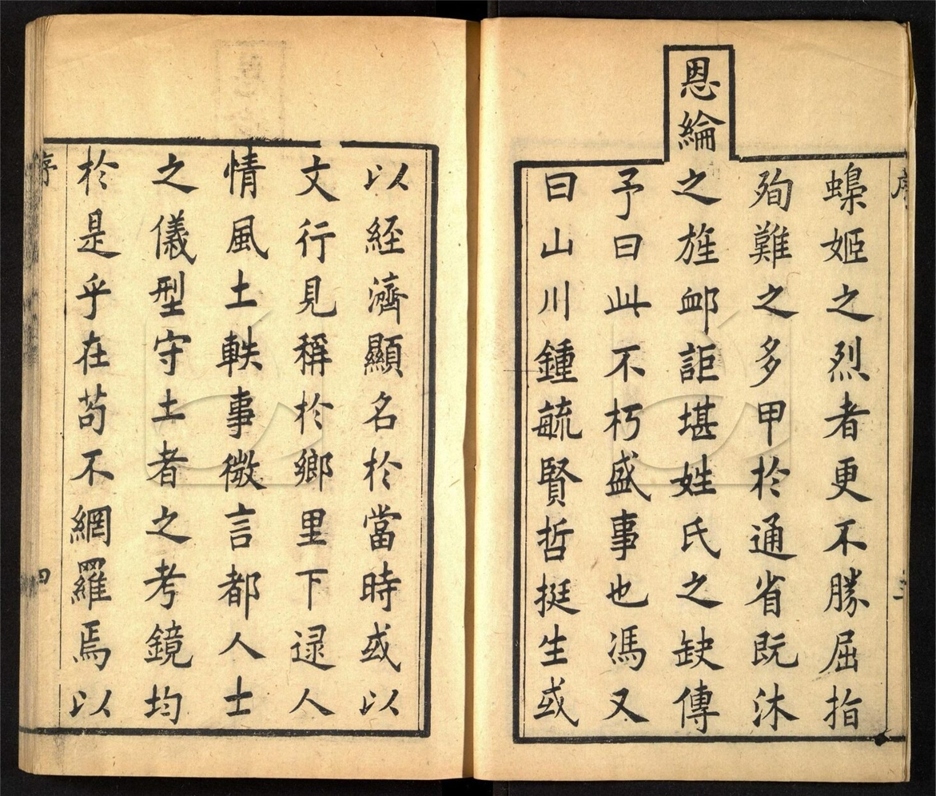 蠑姬之烈者更不勝屈指
殉難之多甲於通省既沐
恩綸
之旌卹詎堪姓氏之缺傳
予曰此不朽盛事也馮又
曰山川鍾毓賢哲挺生或
以經濟顯名於當時或以
文行見稱於鄉里下逯人
情風土軼事微言都人士
之儀型守土者之考鏡均
於是乎在苟不網羅焉以
四